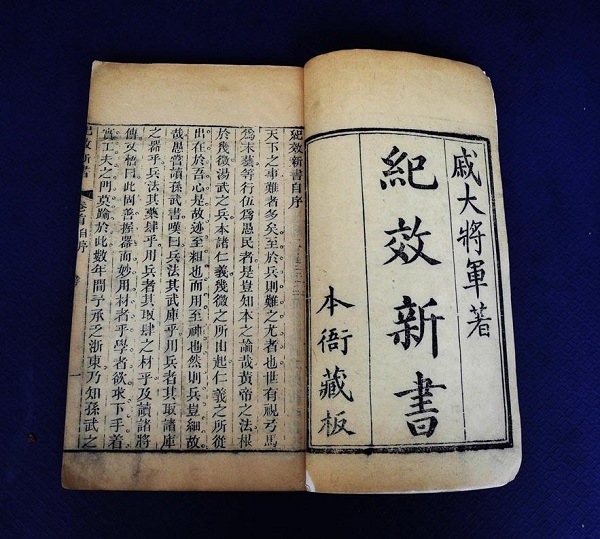 戚大將軍著
紀效新書
本衙藏板
紀效新書自序
天下之事難者多矣至於兵則難之尤者也世有視弓馬
爲末藝等行伍爲愚民者是豈知本之論哉黃帝之法根
於幾微湯武之兵本諸仁義幾微之所由起仁義之所從
出在於吾心是故迹至粗也而用至神也然則兵豈細故
哉愚嘗讀孫武書嘆曰兵法其武庫乎用兵者其取諸庫
之器乎兵法其藥肆乎用兵者其取肆之材乎及讀諸將
傳又悟曰此固善握器而妙用材者乎學者欲求下手着
實工夫之門莫踰於此數年間予承乏浙東乃知孫武之
紀效新書 卷首自序 一